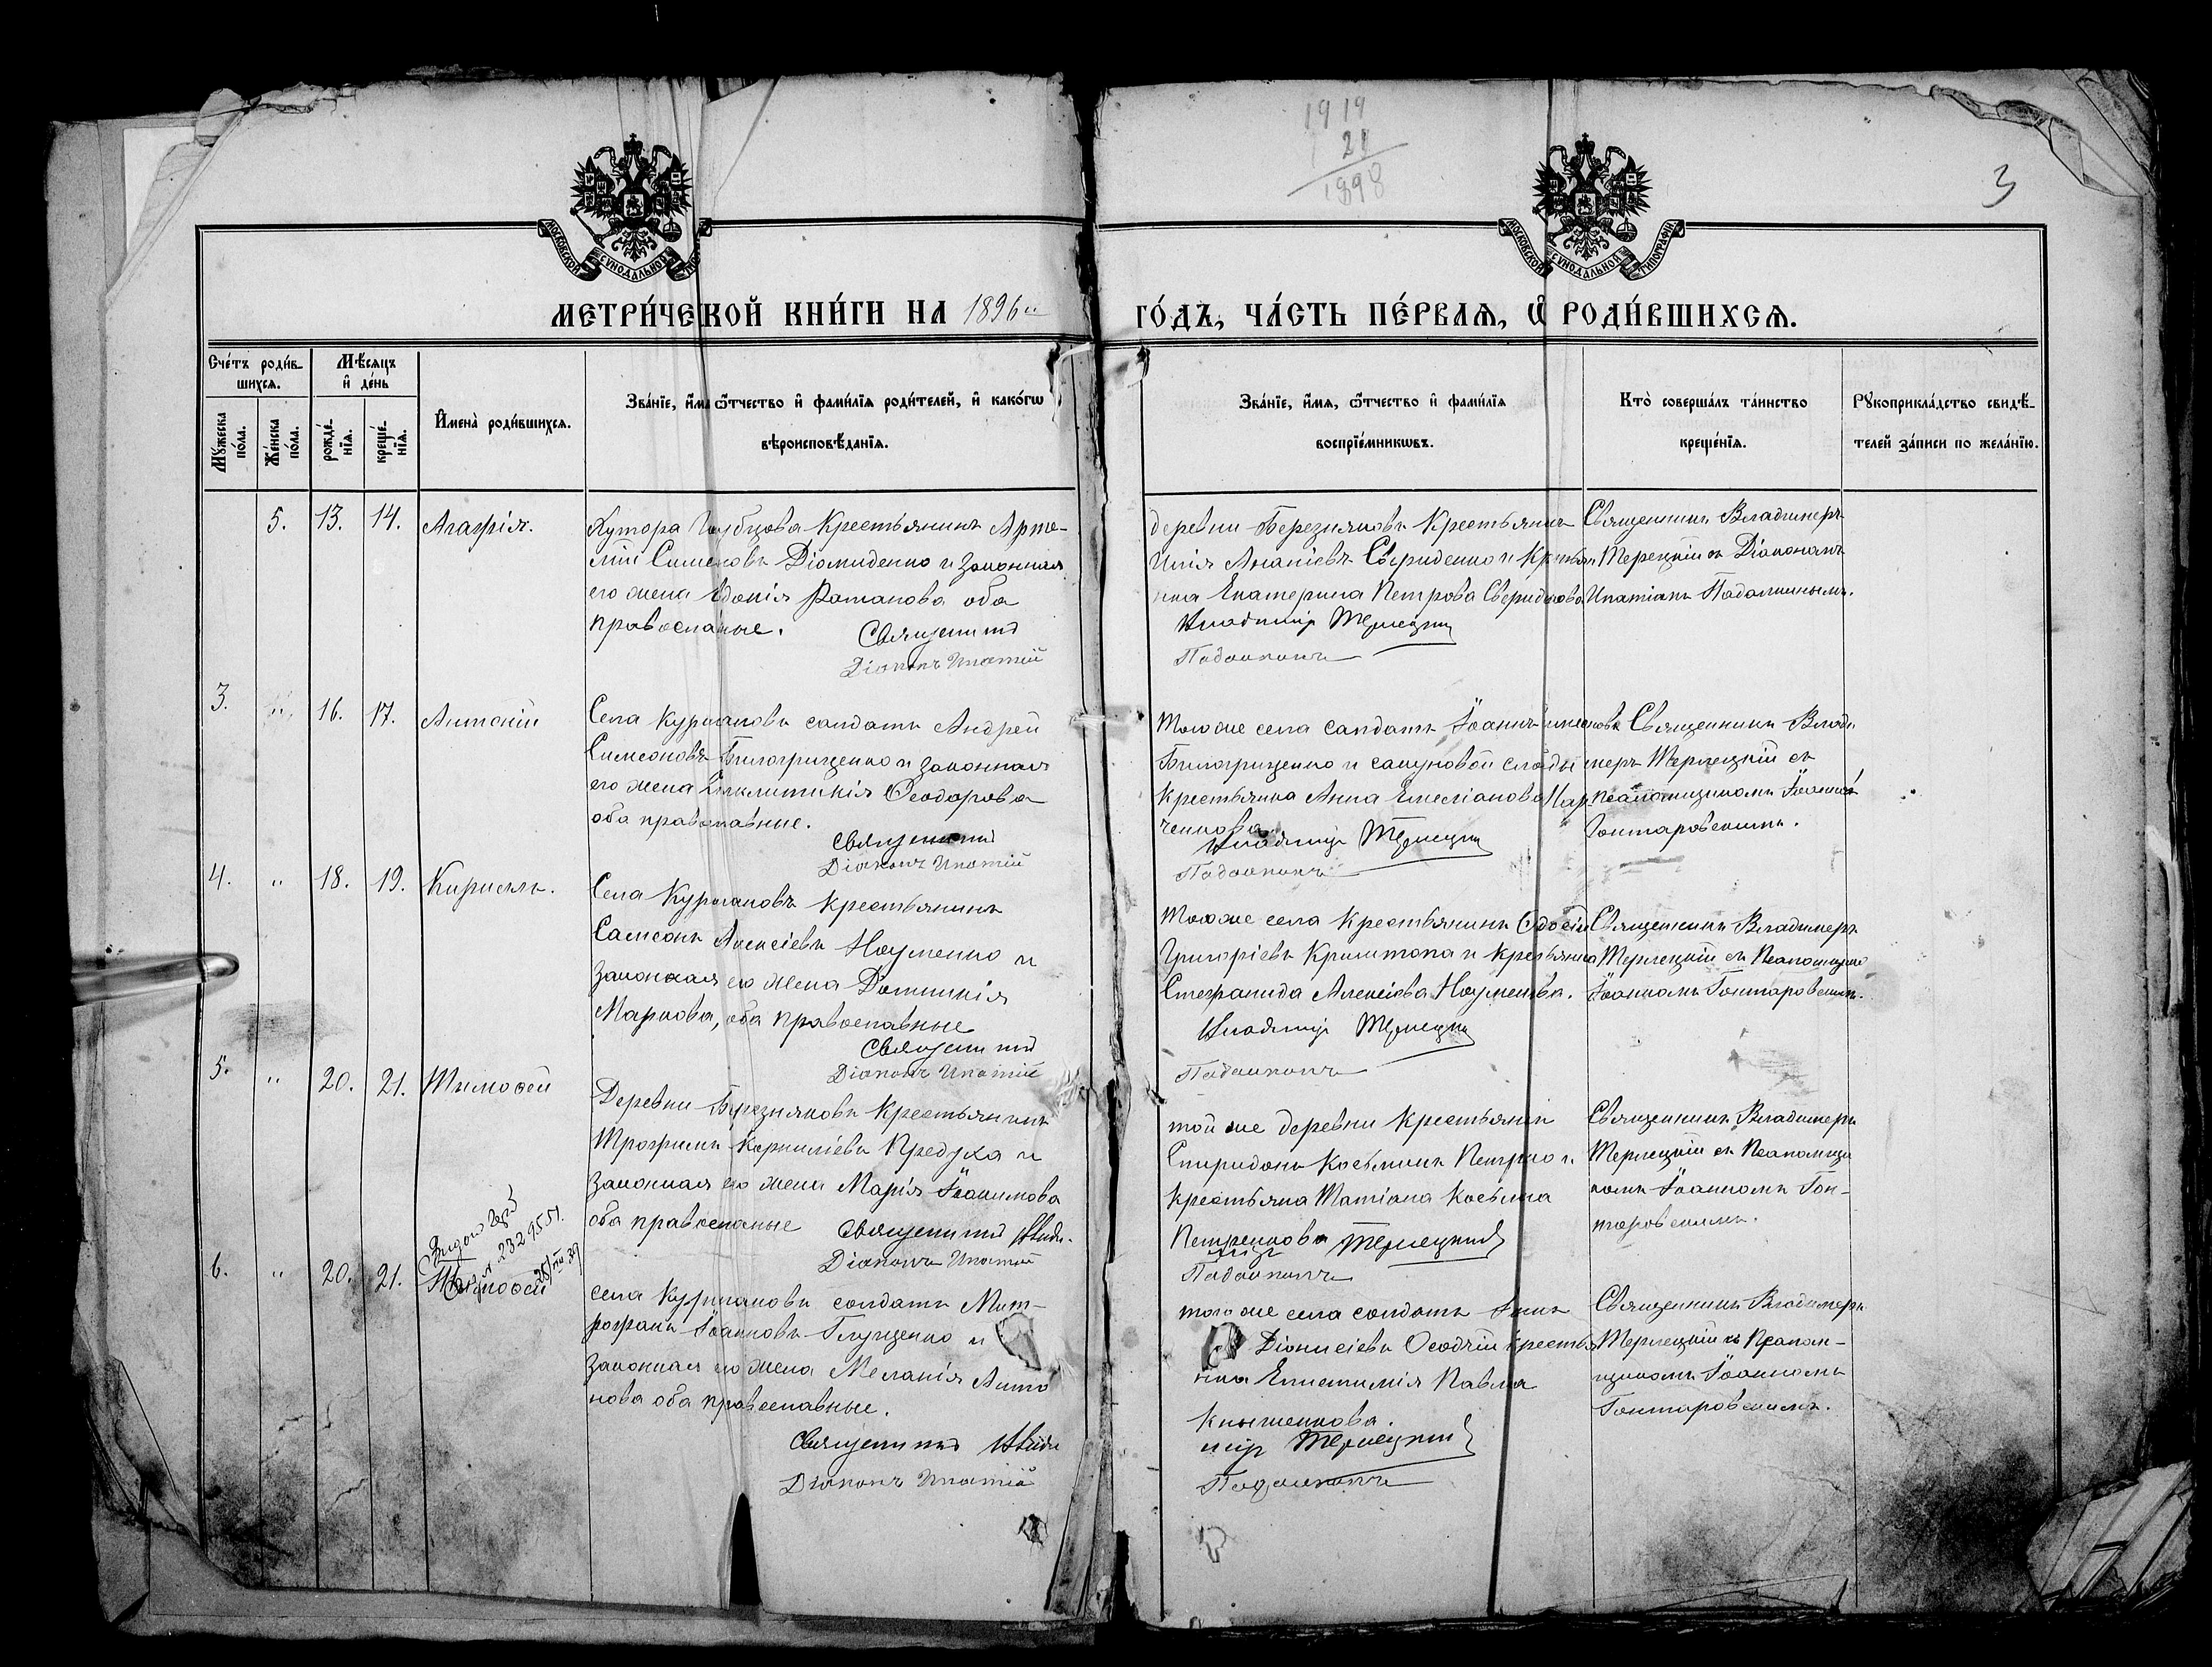 1919
21
1898
3
МОСКОВСКОЙ СУНОДАЛЬНОЙ
МОСКОВСКОЙ СУНОДАЛЬНОЙ ТИПОГРАФІИ
МЕТРИ́ЧЕСКОЙ КНИ́ГИ НА 1896й ГО́ДЪ, ЧА́СТЬ ПЕ́РВАѦ, Ѡ҆ РОДИ́ВШИХСѦ.
Сче́тъ роди́в-
шихсѧ.
Мꙋ́жеска по́ла.
Же́нска по́ла.
Мѣ́сѧцъ
и҆ де́нь
рожде́-
нїѧ.
креще́-
нїѧ.
И҆мена̀ роди́вшихсѧ.
Зва́нїе, и҆́мѧ ѻ҆́тчество и҆ фами́лїѧ роди́телей, и҆ како́гѡ
вѣроисповѣ́данїѧ.
Зва́нїе, и҆́мѧ, ѻ҆́тчество и҆ фами́лїѧ
воспрїе́мникѡвъ.
Кто̀ соверша́лъ та́инство
креще́нїѧ.
Рꙋкоприкла́дство свидѣ́-
телей за́писи по жела́нїю.
5. 13. 14. Агафія.
Хутора Крестьянинъ Арте-
мій Симеоновъ Діомиденко и законная
его жена Евдокія Романова оба
православные.
Священникъ
Діаконъ Ипатій
деревни Березняковъ Крестьянинъ
Илія Ананіевъ Свириденко и Крестья
нка Екатерина Петрова Свириденкова
Владимір Терлецкій
Падалкинъ
Священникъ Владимеръ
Терлецкій съ Діакономъ
Ипатіемъ Падалкинымъ.
3. " 16. 17. Антоній
Села Курмановъ солдатъ Андрей
Симеоновъ Билогрищенко и законная
его жена Ѳеодорова
оба православные.
Священникъ
Діаконъ Ипатій
Того же села солдатъ Іоаннъ Симеоновъ
Билогрищенко и
Крестьянка Анна Емеліанова
ченкова
Владимір Терлецкій
Падалкинъ
Священникъ Влади
меръ Терлецкій съ
псаломщикомъ Іоанномъ
Гонтаровскимъ.
4. " 18. 19. Кириллъ.
Села Курмановъ крестьянинъ
Самсонъ Алексіевъ Науменко и
законная его жена Домникія
Маркова, оба православные
Священникъ
Діаконъ Ипатій
Того же села Крестьянинъ
Григоріевъ и крестьянка
Стефанида Алексіева Науменкова.
Владимір Терлецкій
Падалкинъ
Священникъ Владимеръ
Терлецкій съ Псаломщико
Іоанномъ Гонтаровскимъ.
5. " 20. 21. Тимофей
Деревни Березняковъ Крестьянинъ
Трофимъ Корниліевъ Предуха и
законная его жена Марія Іоакимова
оба православные Священникъ Влади-
Діаконъ Ипатій
той же деревни Крестьянинъ
Спиридонъ Косьминъ Петренко и
крестьянка Татіана Косьмина
Петренкова
мір Терлецкій
Падалкинъ
Священникъ Владимеръ
Терлецкій съ Псаломщи
комъ Іоанномъ Гон-
таровскимъ.
2329551.
6. " 20. 21. Тимофей
села Курмановъ солдатъ Мит-
рофанъ Іоанновъ Глущенко и
законная его жена Меланія Анто
нова оба православные.
Священникъ Влади
Діаконъ Ипатій
того же села солдатъ
Діонисіевъ Осадчій крестья
нка Епистимія Павла
Кнышенкова.
мір Терлецкій
Падалкинъ
Священникъ Владимеръ
Терлецкій съ Псалом-
щикомъ Іоанномъ
Гонтаровскимъ.